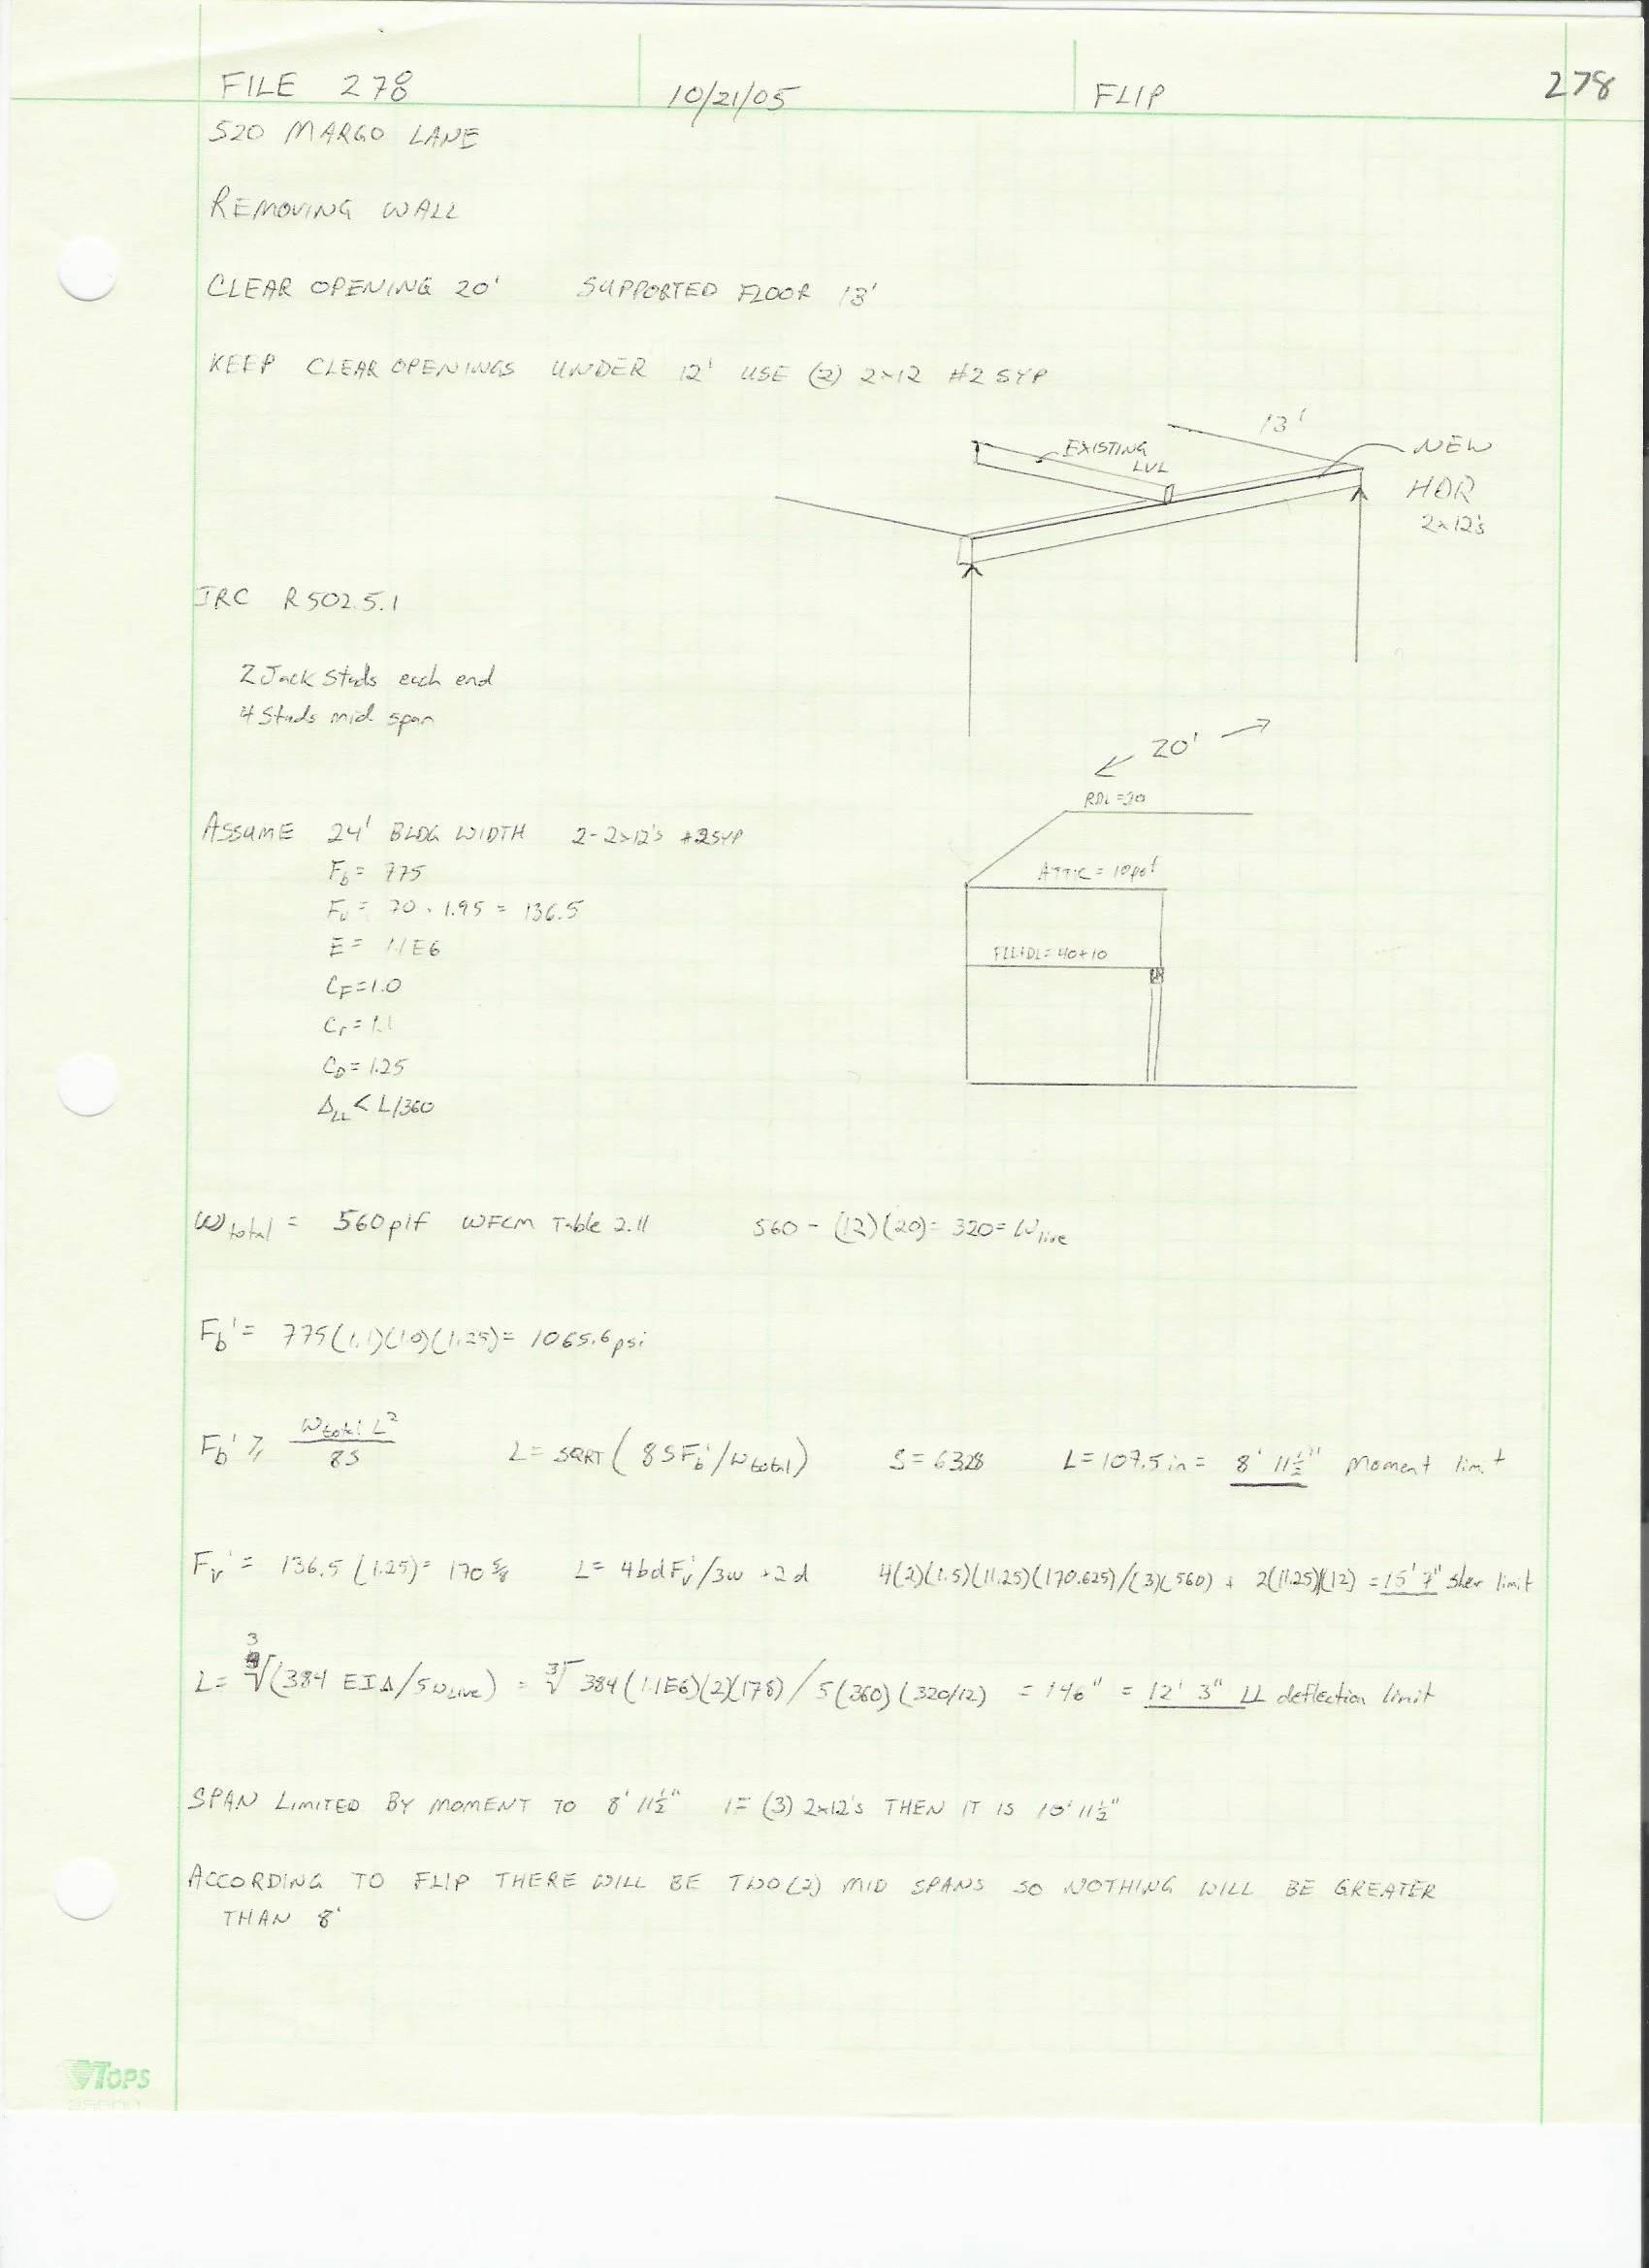 FILE 278 10/21/05 FLIP 278
520 MARGO LANE
REMOVING WALL
CLEAR OPENING 20' SUPPORTED FLOOR 13'
KEEP CLEAR OPENINGS UNDER 12' USE (2) 2x12 #2 SYP
13'
EXISTING LVL
NEW
HDR
2x12's
IRC R502.5.1
2 Jack Studs each end
4 Studs mid span
20'
RDL=20
ASSUME 24' BLDG WIDTH 2-2x12's #2SYP
ATTIC = 10psf
Fb = 775
Fv = 70 · 1.95 = 136.5
E = 1.1E6
FLL+DL= 40+10
CF=1.0
Cr=1.1
CD=1.25
ΔLL < L/360
Wtotal = 560plf WFCM Table 2.11 560 - (12)(20)= 320= Wlive
Fb' = 775(1.1)(1.0)(1.25)= 1065.6psi
Fb' ≥ Wtotal L²/8S L= SQRT(8SFb'/Wtotal) S=63.28 L=107.5in= 8' 11½" Moment limit
Fv' = 136.5(1.25)= 170 5/8 L= 4bdFv'/3w +2d 4(2)(1.5)(11.25)(170.625)/(3)(560) + 2(11.25)(12) =15' 7" sher limit
L= ³√(384 EIΔ/5wLIVE) = ³√384(1.1E6)(2)(178)/5(360)(320/12) = 146" = 12' 3" LL deflection limit
SPAN LIMITED BY MOMENT TO 8' 11½" IF (3) 2x12's THEN IT IS 10' 11½"
ACCORDING TO FLIP THERE WILL BE TWO(2) MID SPANS SO NOTHING WILL BE GREATER
THAN 8'
TOPS